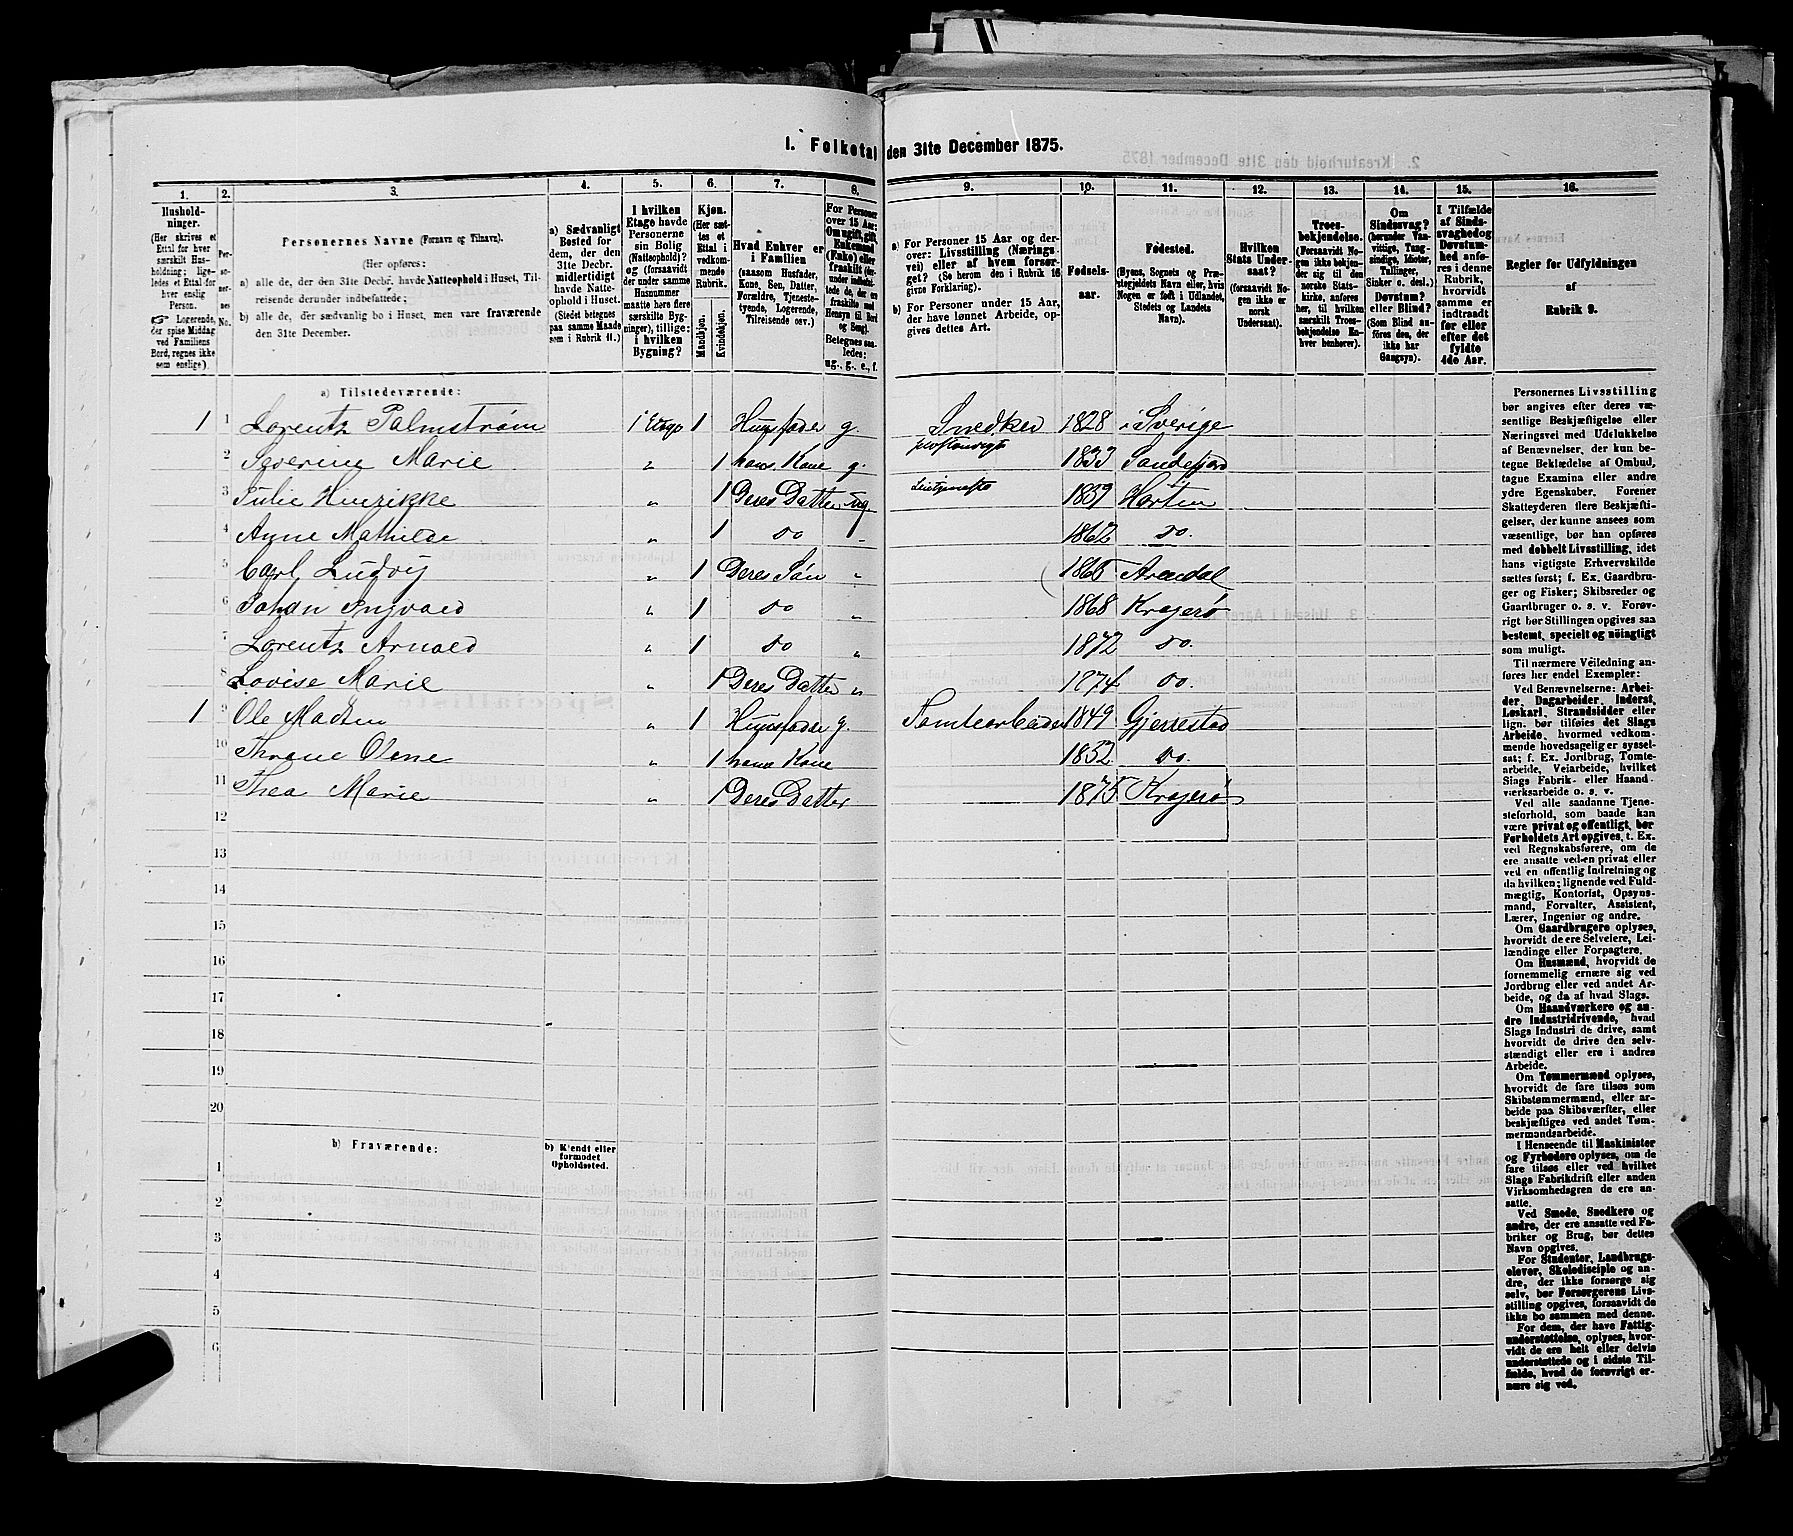 1. Folketal den 31te December 1875.
1. 2. 3. 4. 5. 6. 7. 8. 9. 10. 11. 12. 13. 14. 15. 16.
Husholdninger. (Her skrives et Ettal for hver særskilt Husholdning; ligeledes et Ettal for hver enslig Person. ☞ Logerende, der spise Middag ved Familiens Bord, regnes ikke som enslige).
Personernes No.
Personernes Navne (Fornavn og Tilnavn).
(Her opføres:
a) alle de, der den 31te Decbr. havde Natteophold i Huset, Tilreisende derunder indbefattede;
b) alle de, der sædvanlig bo i Huset, men vare fraværende den 31te December.
a) Sædvanligt Bosted for dem, der den 31te Decbr. midlertidigt havde Natteophold i Huset. (Stedet betegnes paa samme Maade som i Rubrik 11.)
I hvilken Etage havde Personerne sin Bolig (Natteophold)? og (forsaavidt der under samme Husnummer maatte høre flere særskilte Bygninger), tillige: i hvilken Bygning?
Kjøn. (Her sættes et Ettal i vedkommende Rubrik. Mandkjøn. Kvindekjøn.
Hvad Enhver er i Familien (saasom Husfader, Kone, Søn, Datter, Forældre, Tjenestetyende, Logerende, Tilreisende osv.)
For Personer over 15 Aar: Om ugift, gift, Enkemand (Enke) eller fraskilt
Betegnes saaledes: ug., g., e., f.
a) For Personer 15 Aar og derover: Livsstilling (Næringsvei) eller af hvem forsørget? (Se herom den i Rubrik 16 givne Forklaring).
b) For Personer under 15 Aar, der have lønnet Arbeide, opgives dettes Art.
Fødsels-aar.
Fødested. (Byens, Sognets og Præstegjeldets Navn eller, hvis Nogen er født i Udlandet, Stedets og Landets Navn).
Hvilken Stats Undersaat? (forsaavidt Nogen ikke er norsk Undersaat).
Troesbekjendelse. (Forsaavidt Nogen ikke bekjender sig til den norske Statskirke, anføres her, til hvilken særskilt Troesbekjendelse Enhver henhører).
Om Sindssvag? (herunder Vanvittige, Tungsindige, Idioter, Tullinger, Sinker o. desl.) Døvstum? eller Blind? (Som Blind anføres den, der ikke har Gangsyn).
I Tilfælde af Sindssvaghed og Døvstumhed anføres i denne Rubrik, hvorvidt samme er indtraadt før eller efter det fyldte 4de Aar.
Regler for Udfyldningen af Rubrik 9.
a) Tilstedeværende:
1 1 Lorentz Palmstrøm 1 Etage 1 Husfader g. Snedker 1828 i Sverige
2 Severine Marie " 1 hans Kone g. 1833 Sandefjord
3 Julie Henrikke " 1 Deres Datter ug. 1859 Horten
4 Anne Mathilde " 1 do " 1862 do.
5 Carl Ludvig " 1 Deres Søn " 1865 Arendal
6 Johan Ingvald " 1 do " 1868 Kragerø
7 Lorentz Arnold " 1 do " 1872 do.
8 Lovise Marie " 1 Deres Datter " 1874 do.
1 9 Ole Madsen " 1 Husfader g. Tomtearbeider 1849 Gjerrestad
10 Thrane Olene " 1 hans Kone 1852 do.
11 Thea Marie " 1 Deres Datter 1875 Kragerø
12
13
14
15
16
17
18
19
20
b) Fraværende: b) Kjendt eller formodet Opholdssted.
1
2
3
4
5
6
Personernes Livsstilling
bør angives efter deres væ-
sentlige Beskjæftigelse eller
Næringsvei med Udelukkelse
af Benævnelser, der kun be-
tegne Beklædelse af Ombud,
tagne Examina eller andre
ydre Egenskaber. Forener
Skatteyderen flere Beskjæfti-
gelser, der kunne ansees som
væsentlige, bør han opføres
med dobbelt Livsstilling, idet
hans vigtigste Erhvervskilde
sættes først; f. Ex. Gaardbru-
ger og Fisker; Skibsreder og
Gaardbruger o. s. v. Forøv-
rigt bør Stillingen opgives saa
bestemt, specielt og nøiagtigt
som muligt.
Til nærmere Veiledning an-
føres her endel Exempler:
Ved Benævnelserne: Arbei-
der, Dagarbeider, Inderst,
Løskarl, Strandsidder eller
lign. bør tilføies det Slags
Arbeide, hvormed vedkom-
mende hovedsagelig er syssel-
sat; f. Ex. Jordbrug, Tomte-
arbeide, Veiarbeide, hvilket
Slags Fabrik- eller Haand-
værksarbeide o. s. v.
Ved alle saadanne Tjene-
steforhold, som baade kan
være privat og offentligt, bør
Forholdets Art opgives, t. Ex.
ved Regnskabsførere, om de
ere ansatte ved en privat eller
ved en offentlig Indretning og
da hvilken; lignende ved Fuld-
mægtig, Kontorist, Opsyns-
mand, Forvalter, Assistent,
Lærer, Ingeniør og andre.
Om Gaardbrugere oplyses,
hvorvidt de ere Selveiere, Lei-
lændinge eller Forpagtere.
Om Husmænd, hvorvidt de
fornemmelig ernære sig ved
Jordbrug eller ved andet Ar-
beide, og da af hvad Slags.
Om Haandværkere og an-
dre Industridrivende, hvad
Slags Industri de drive, samt
hvorvidt de drive den selv-
stændigt eller ere i andres
Arbeide.
Om Tømmermænd oplyses,
hvorvidt de fare tilsøs som
Skibstømmermænd, eller ar-
beide paa Skibsværfter, eller
beskjæftiges ved andet Tøm-
mermandsarbeide.
I Henseende til Maskinister
og Fyrbødere oplyses, om de
fare tilsøs eller ved hvilket
Slags Fabrikdrift eller anden
Virksomhedsgren de ere an-
satte.
Ved Smede, Snedkere og
andre, der ere ansatte ved Fa-
briker og Brug, bør dettes
Navn opgives.
For Studenter, Landbrugs-
elever, Skoledisciple og an-
dre, der ikke forsørge sig
selv, bør Forsørgerens Livs-
stilling opgives, forsaavidt de
ikke bo sammen med denne.
For dem, der have Fattig-
understøttelse, oplyses, hvor-
vidt de ere helt eller delvis
understøttede og i sidste Til-
fælde, hvad de forøvrigt er-
nære sig ved.